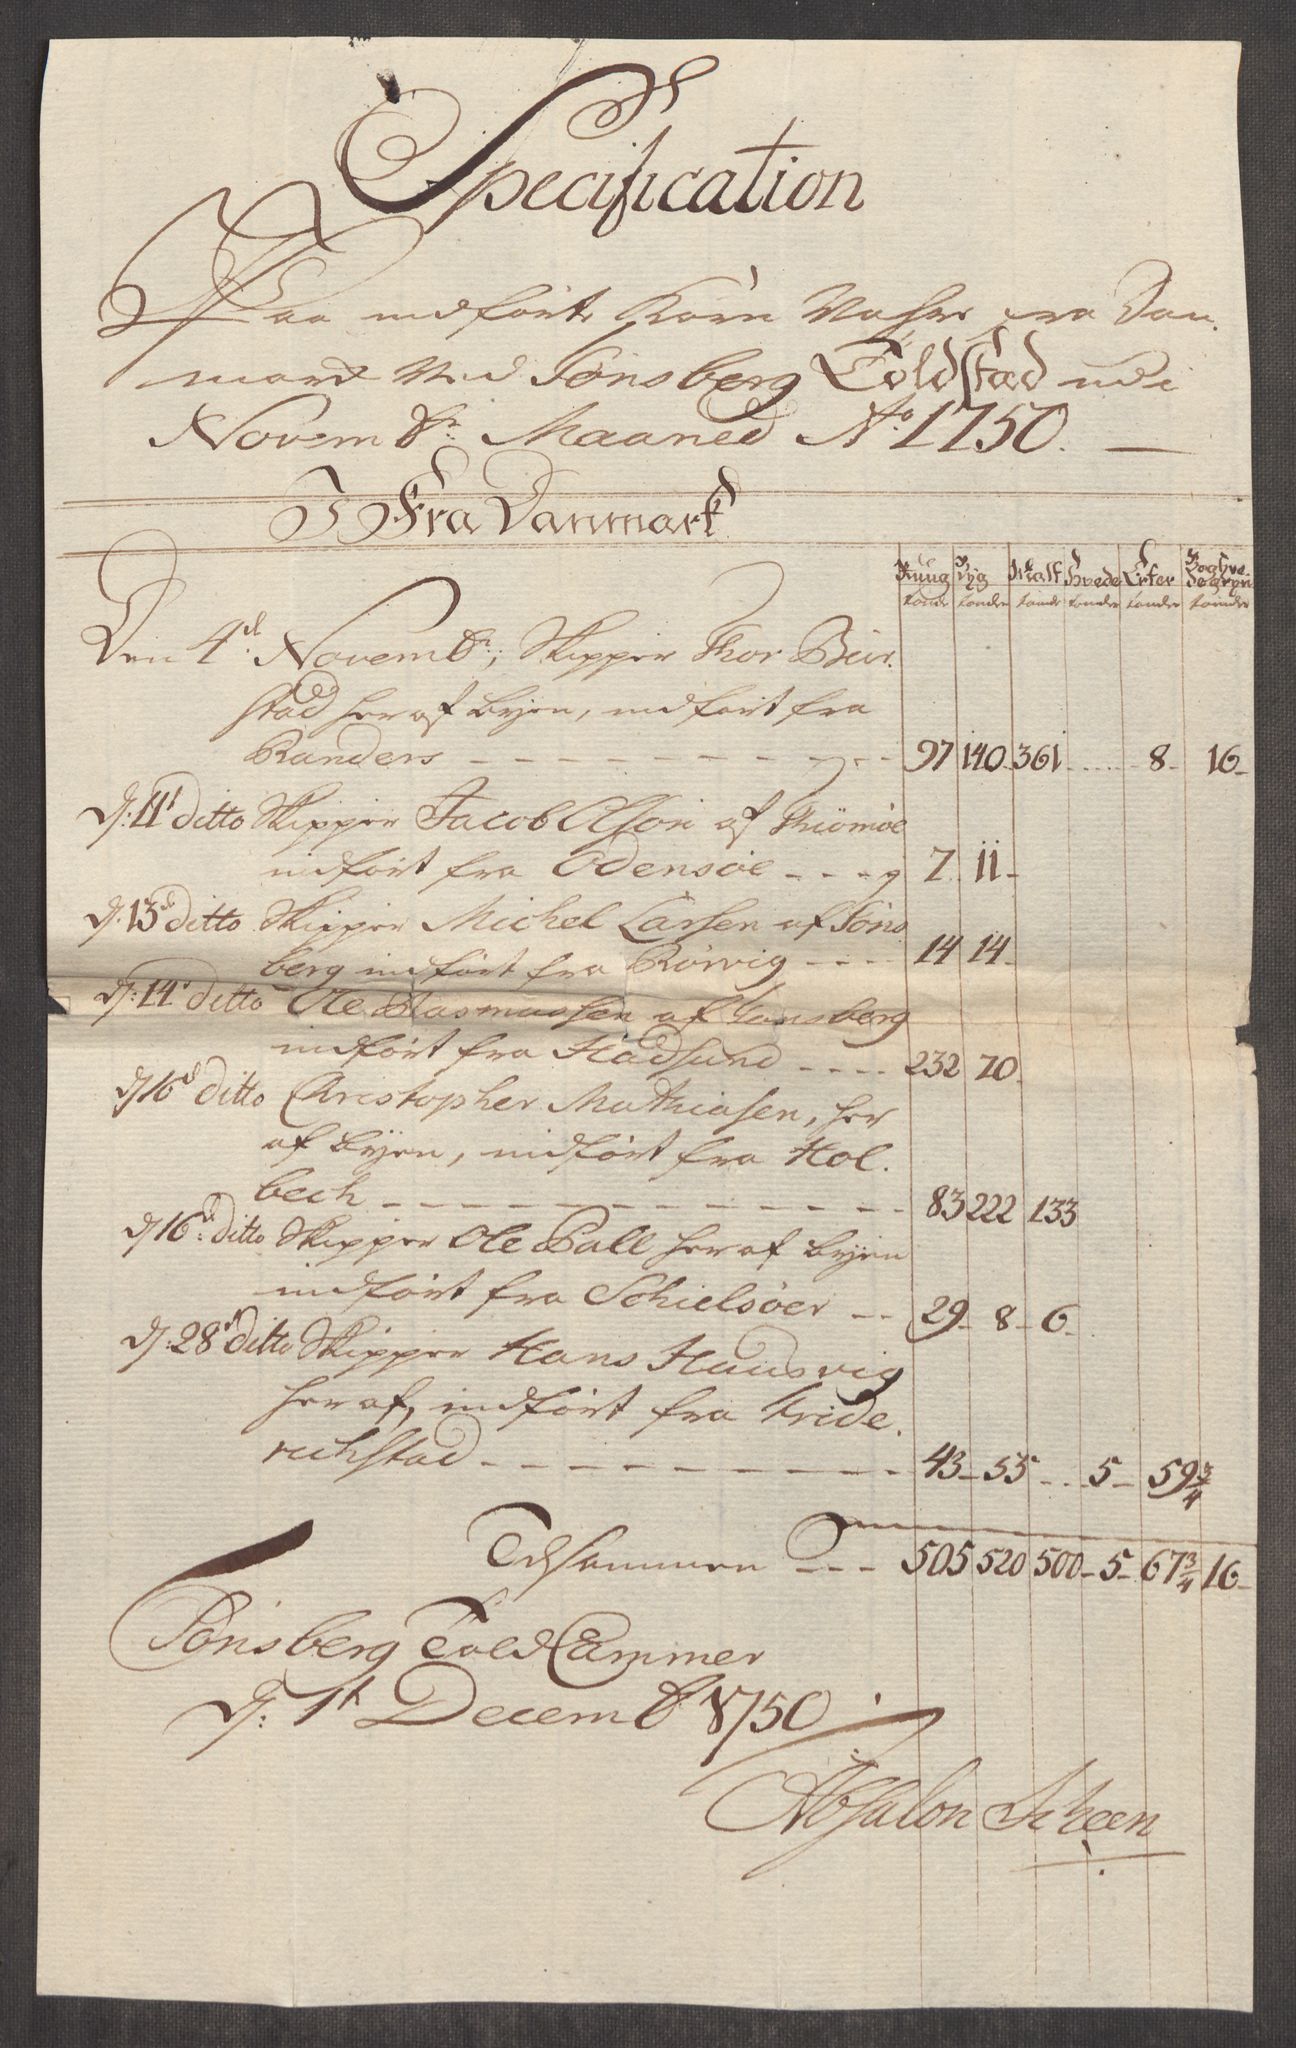 Specification
Paa indførte Korn Vahre fra Dan-
march Ved Tönsberg Toldstæd udi
Novembr: Maaned Ao 1750. —
Fra Danmark
Ruug Byg Malt Hvede Erter Boghve-
de gryn
tønder tønder tønder tønder tønder tønder
Den 4de Novembr; Skipper Thor Beur-
stad her af Byen, indført fra
Randers - - - 97 140 361 8 16
d: 11t ditto Skipper Jacob Olsøn af Thiömöe
indført fra Odensöe - - - 7 11
d. 13de ditto Skipper Michel Larsen af Töns
berg indført fra Rörvig - - - 14 14
d: 14de ditto Ole Rasmussen af Tønsberg
indført fra Hadsund - - - 232 70
d 16de ditto Christopher Mathiasen, her
af Byen, indført fra Hol-
bech - - - 83 222 133
d 16de: ditto Skipper Ole Pall her af Byen
indført fra Schielsöer - - 29 8 6
d: 28de ditto Skipper Hans Hausvig
her af, indført fra Fride-
richstad - - - 43 55 5 59 3/4
Tilsammen - - - 505 520 500 5 67 3/4 16
Tönsberg Told Cammer
d: 1t Decembr 1750
Absalon Scheen